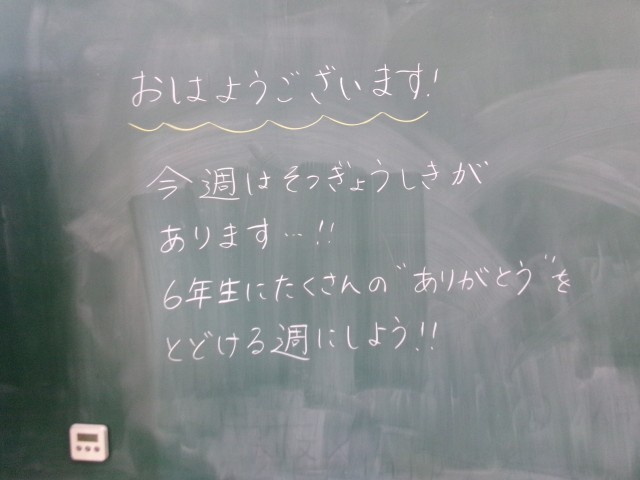 おはようございます!
今週はそつぎょうしきが
あります…!!
6年生にたくさんの"ありがとう"を
とどける週にしよう!!